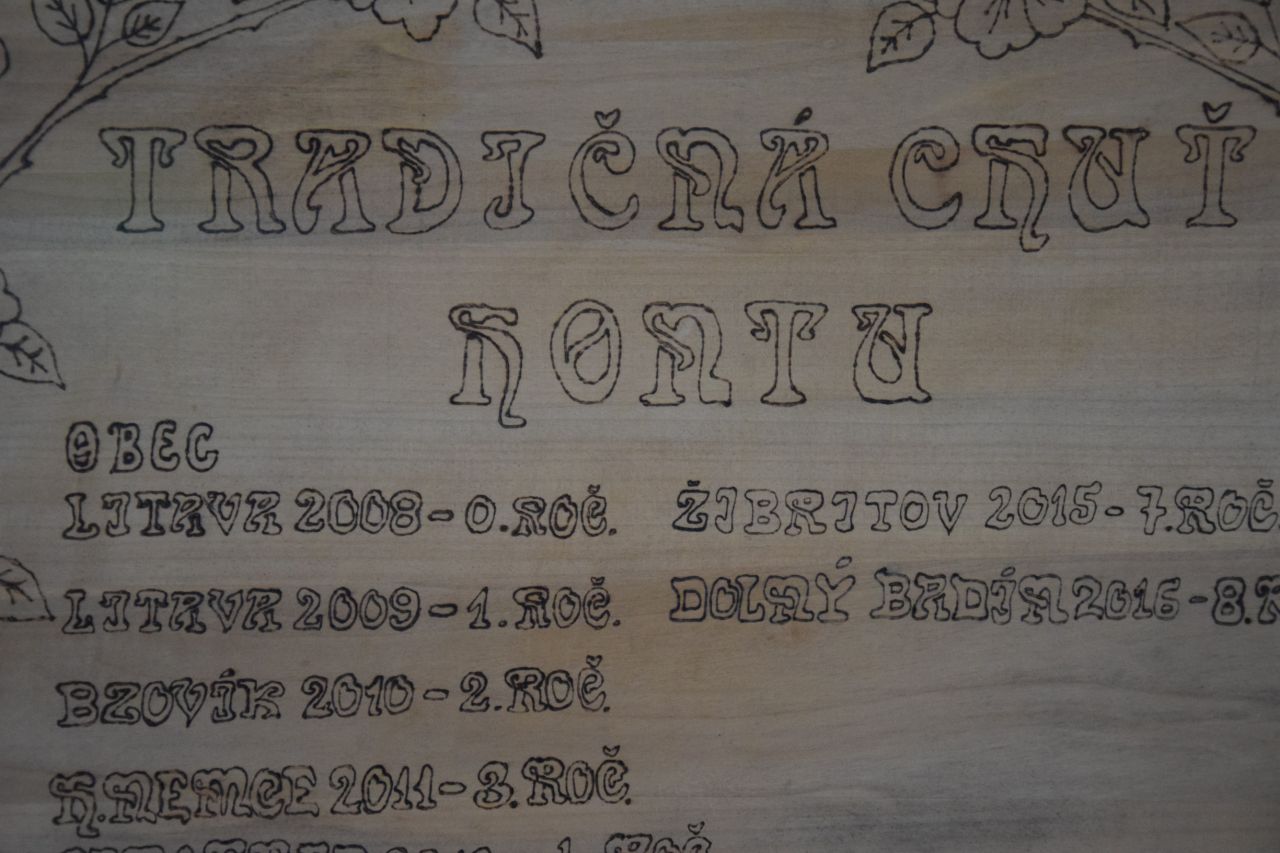 TRADIČNÁ CHUŤ
HONTU
OBEC
LITAVA 2008 - 0. ROČ.
LITAVA 2009 - 1. ROČ.
BZOVÍK 2010 - 2. ROČ.
H. NEMCE 2011 - 3. ROČ.
ŽIBRITOV 2015 - 7. ROČ
DOLNÝ BADÍN 2016 - 8. R